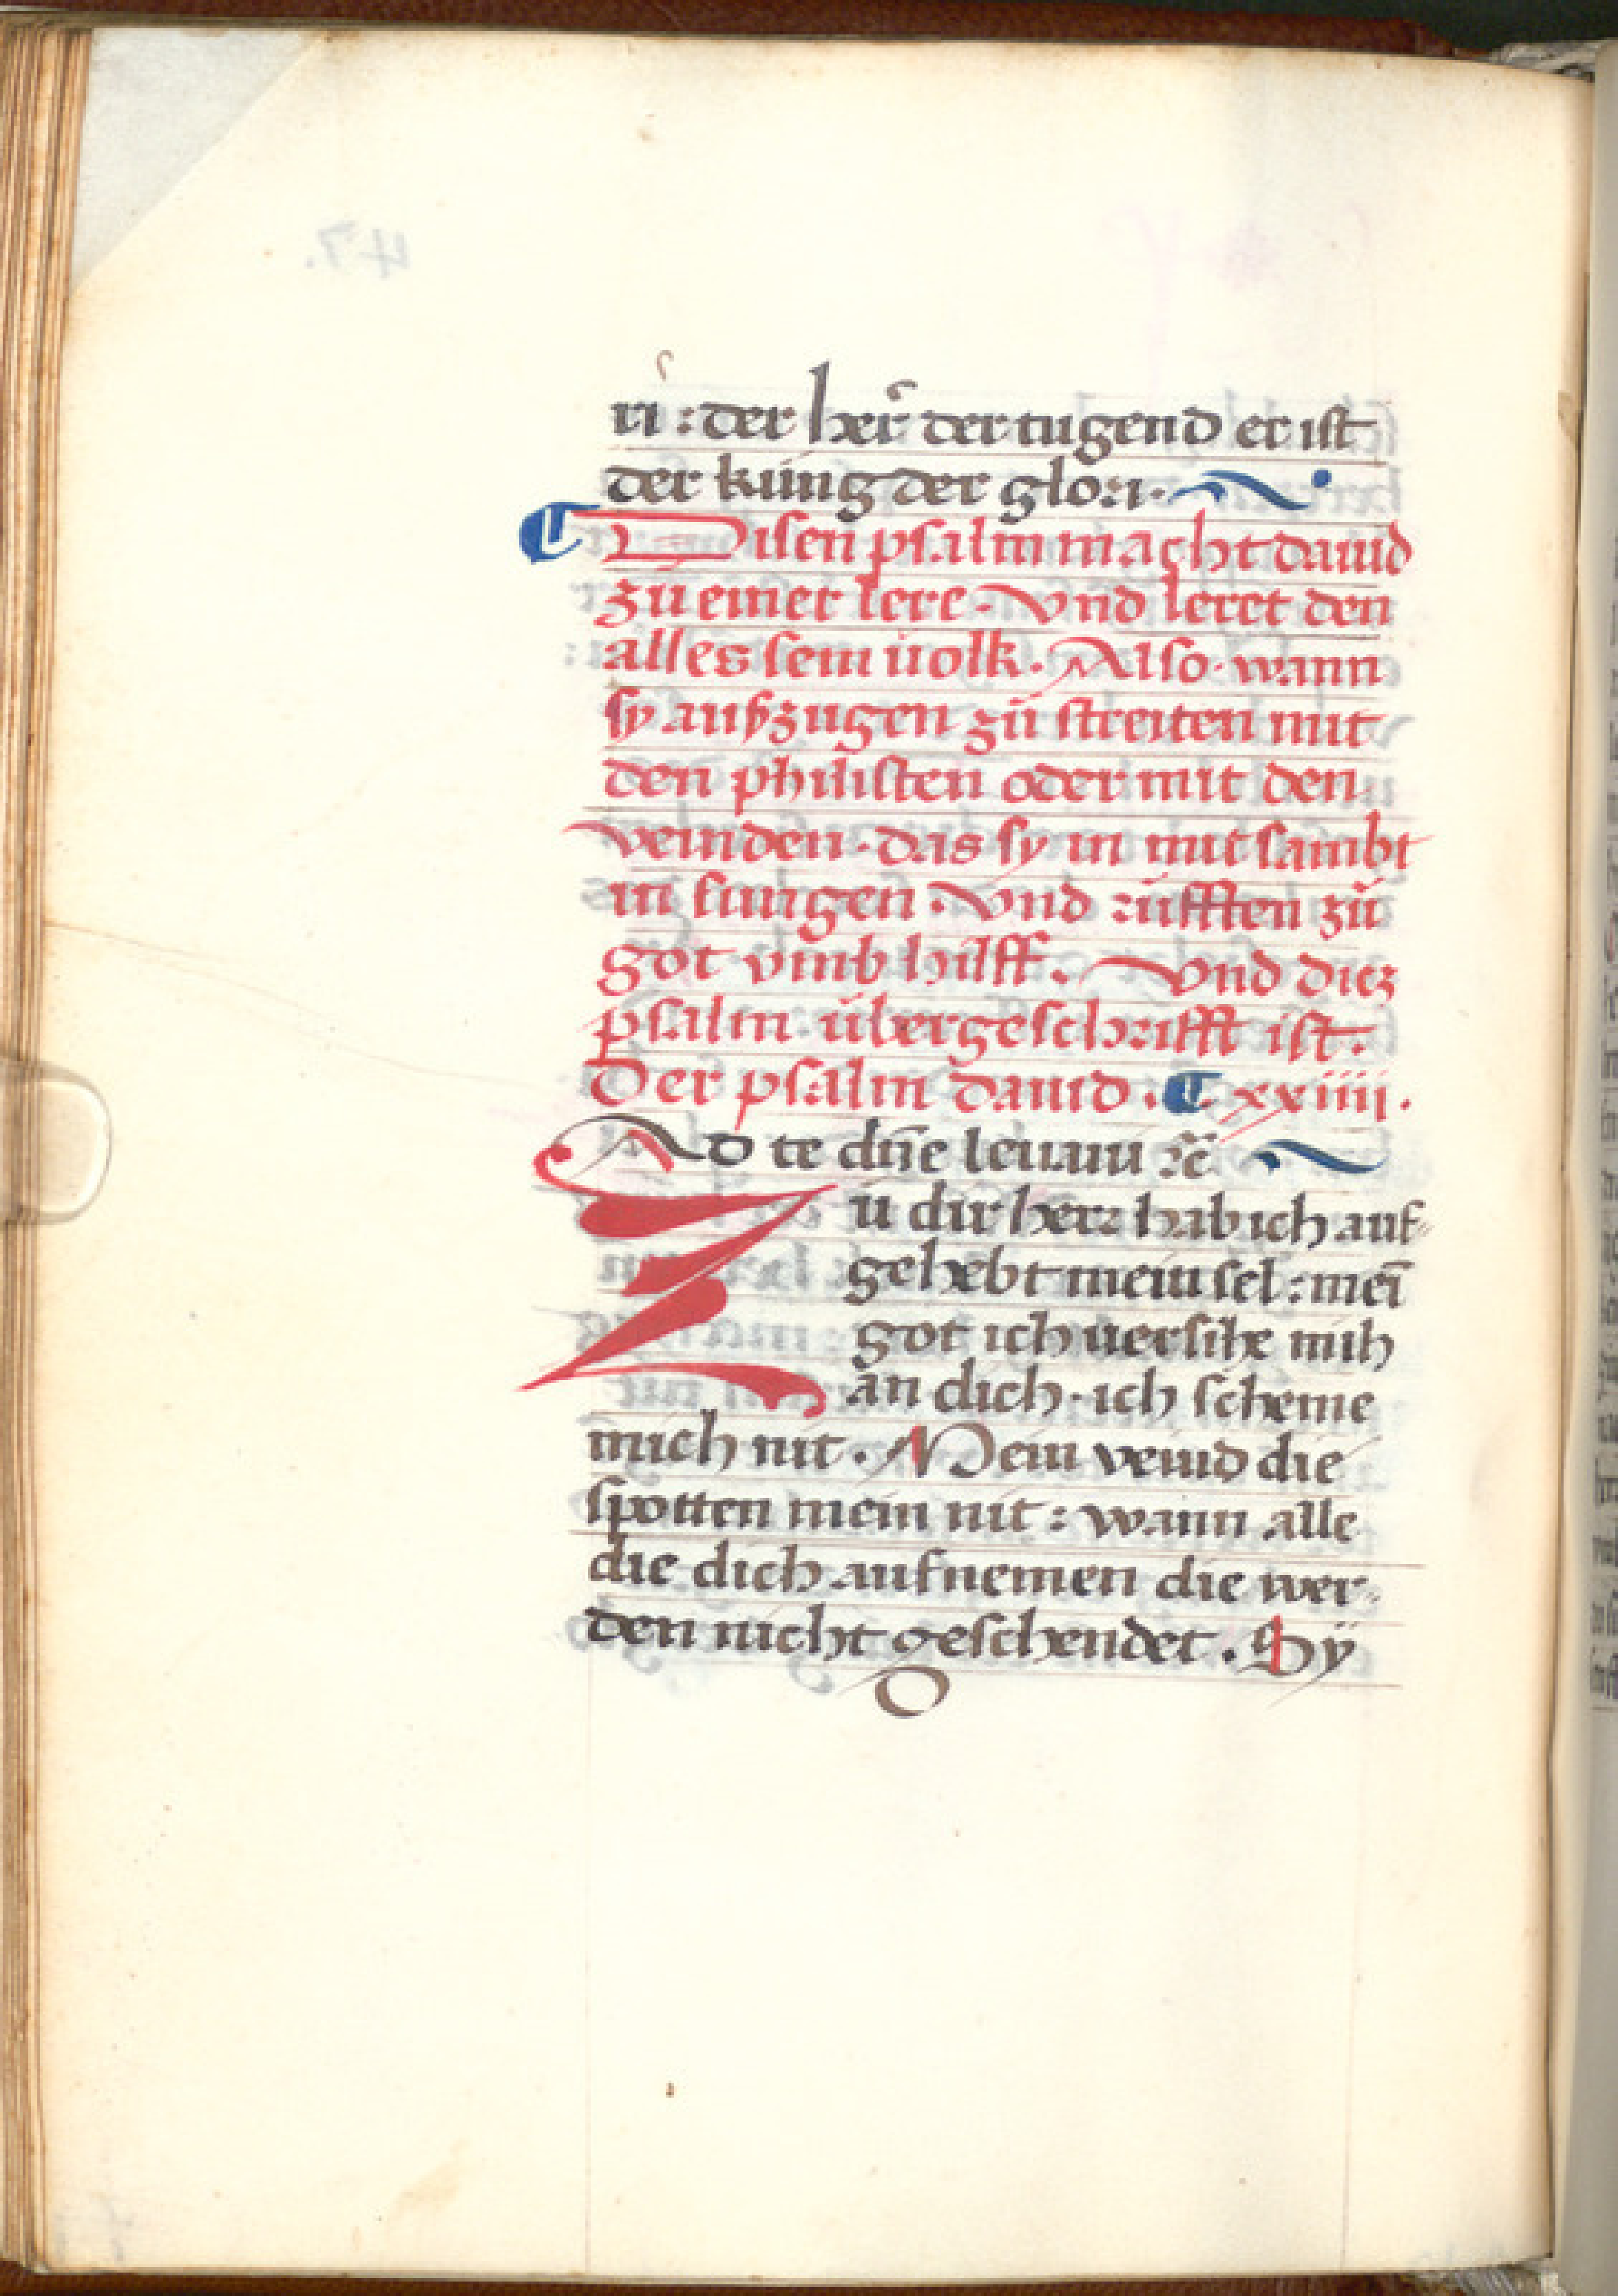 ri : der herˀ der tugend er ist
der küng der glori.
¶ Disen psalm macht dauid
zů einer lere. Vnd leret den
alles sein uolk. Also. wann
sy auſzzugen zů streiten mit
den philisten oder mit den
veinden. das sy in mit sambt
in sungen. Vnd rüfften zů
got vmb hilff. Vnd diez
psalm übergeschrifft ist.
Der psalm dauid. ¶ xxiiii.
Ad te dn̄e leuaui ꝛc̄
Zu dir herr hab ich auf-
gehebt mein sel : mei̅
got ich uersihe mih
an dich. ich scheme
mich nit. Mein veind die
spotten mein nit : wann alle
die dich aufnemen die wer-
den nicht geschendet. Sÿ